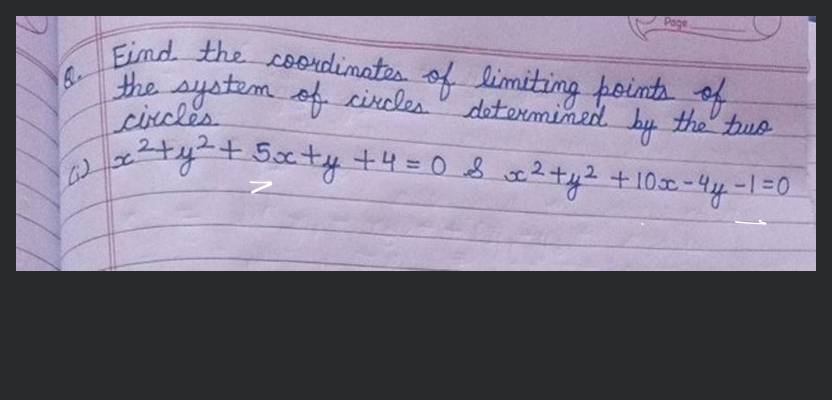 Page
Q. Find the coordinates of limiting points of
the system of circles determined by the two
circles
(i) x²+y²+5x+y+4=0 & x²+y²+10x-4y-1=0